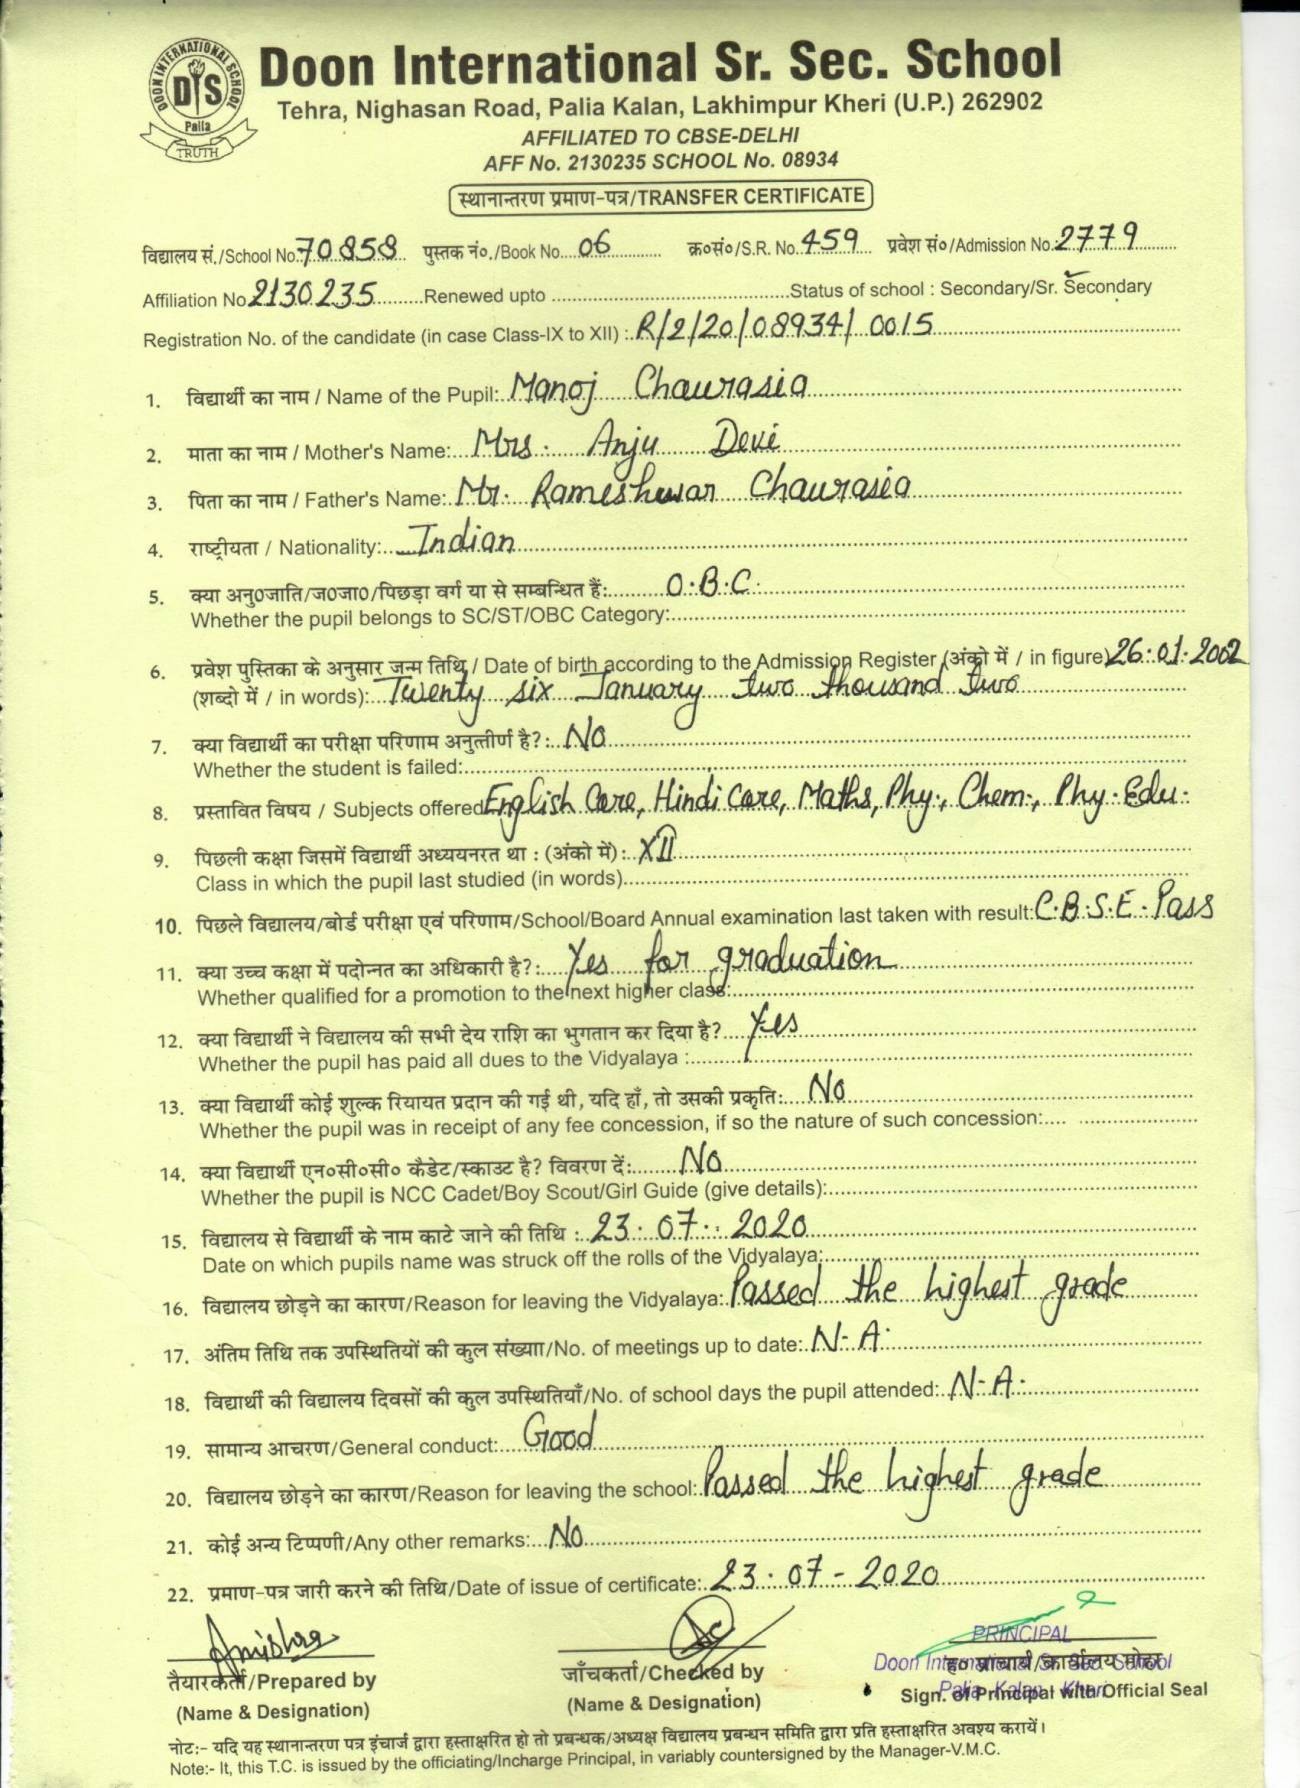 DOON INTERNATIONAL SCHOOL
DIS
Palia
TRUTH
Doon International Sr. Sec. School
Tehra, Nighasan Road, Palia Kalan, Lakhimpur Kheri (U.P.) 262902
AFFILIATED TO CBSE-DELHI
AFF No. 2130235 SCHOOL No. 08934
स्थानान्तरण प्रमाण-पत्र/TRANSFER CERTIFICATE
विद्यालय सं./School No. 70858 पुस्तक नं०./Book No. 06 क्र०सं०/S.R. No. 459 प्रवेश सं०/Admission No. 2779
Affiliation No 2130235 Renewed upto Status of school : Secondary/Sr. Secondary
Registration No. of the candidate (in case Class-IX to XII) : R/2/20/08934/0015
1. विद्यार्थी का नाम / Name of the Pupil: Manoj Chaurasia
2. माता का नाम / Mother's Name: Mrs. Anju Devi
3. पिता का नाम / Father's Name: Mr. Rameshwar Chaurasia
4. राष्ट्रीयता / Nationality: Indian
5. क्या अनु0जाति/ज0जा0/पिछड़ा वर्ग या से सम्बन्धित हैं: O.B.C.
Whether the pupil belongs to SC/ST/OBC Category:
6. प्रवेश पुस्तिका के अनुसार जन्म तिथि / Date of birth according to the Admission Register (अंको में / in figure) 26.01.2002
(शब्दो में / in words): Twenty six January two thousand two
7. क्या विद्यार्थी का परीक्षा परिणाम अनुत्तीर्ण है?: No
Whether the student is failed:
8. प्रस्तावित विषय / Subjects offered English Core, Hindi Core, Maths, Phy., Chem., Phy. Edu.
9. पिछली कक्षा जिसमें विद्यार्थी अध्ययनरत था : (अंको में): XII
Class in which the pupil last studied (in words)
10. पिछले विद्यालय/बोर्ड परीक्षा एवं परिणाम/School/Board Annual examination last taken with result: C.B.S.E. Pass
11. क्या उच्च कक्षा में पदोन्नत का अधिकारी है?: Yes for graduation
Whether qualified for a promotion to the next higher class:
12. क्या विद्यार्थी ने विद्यालय की सभी देय राशि का भुगतान कर दिया है? Yes
Whether the pupil has paid all dues to the Vidyalaya :
13. क्या विद्यार्थी कोई शुल्क रियायत प्रदान की गई थी, यदि हाँ, तो उसकी प्रकृति: No
Whether the pupil was in receipt of any fee concession, if so the nature of such concession:
14. क्या विद्यार्थी एन०सी०सी० कैडेट/स्काउट है? विवरण दें: No
Whether the pupil is NCC Cadet/Boy Scout/Girl Guide (give details):
15. विद्यालय से विद्यार्थी के नाम काटे जाने की तिथि : 23.07.2020
Date on which pupils name was struck off the rolls of the Vidyalaya:
16. विद्यालय छोड़ने का कारण/Reason for leaving the Vidyalaya: Passed the highest grade
17. अंतिम तिथि तक उपस्थितियों की कुल संख्याा/No. of meetings up to date: N.A.
18. विद्यार्थी की विद्यालय दिवसों की कुल उपस्थितियाँ/No. of school days the pupil attended: N.A.
19. सामान्य आचरण/General conduct: Good
20. विद्यालय छोड़ने का कारण/Reason for leaving the school: Passed the highest grade
21. कोई अन्य टिप्पणी/Any other remarks: No
22. प्रमाण-पत्र जारी करने की तिथि/Date of issue of certificate: 23.07-2020
PRINCIPAL
Doon International Sr. Sec. School
Palia Kalan Kheri
तैयारकर्ता/Prepared by जाँचकर्ता/Checked by ह० प्राचार्य/कार्यालय मोहर
(Name & Designation) (Name & Designation) Sign. of Principal with Official Seal
नोट:- यदि यह स्थानान्तरण पत्र इंचार्ज द्वारा हस्ताक्षरित हो तो प्रबन्धक/अध्यक्ष विद्यालय प्रबन्धन समिति द्वारा प्रति हस्ताक्षरित अवश्य करायें।
Note:- It, this T.C. is issued by the officiating/Incharge Principal, in variably countersigned by the Manager-V.M.C.